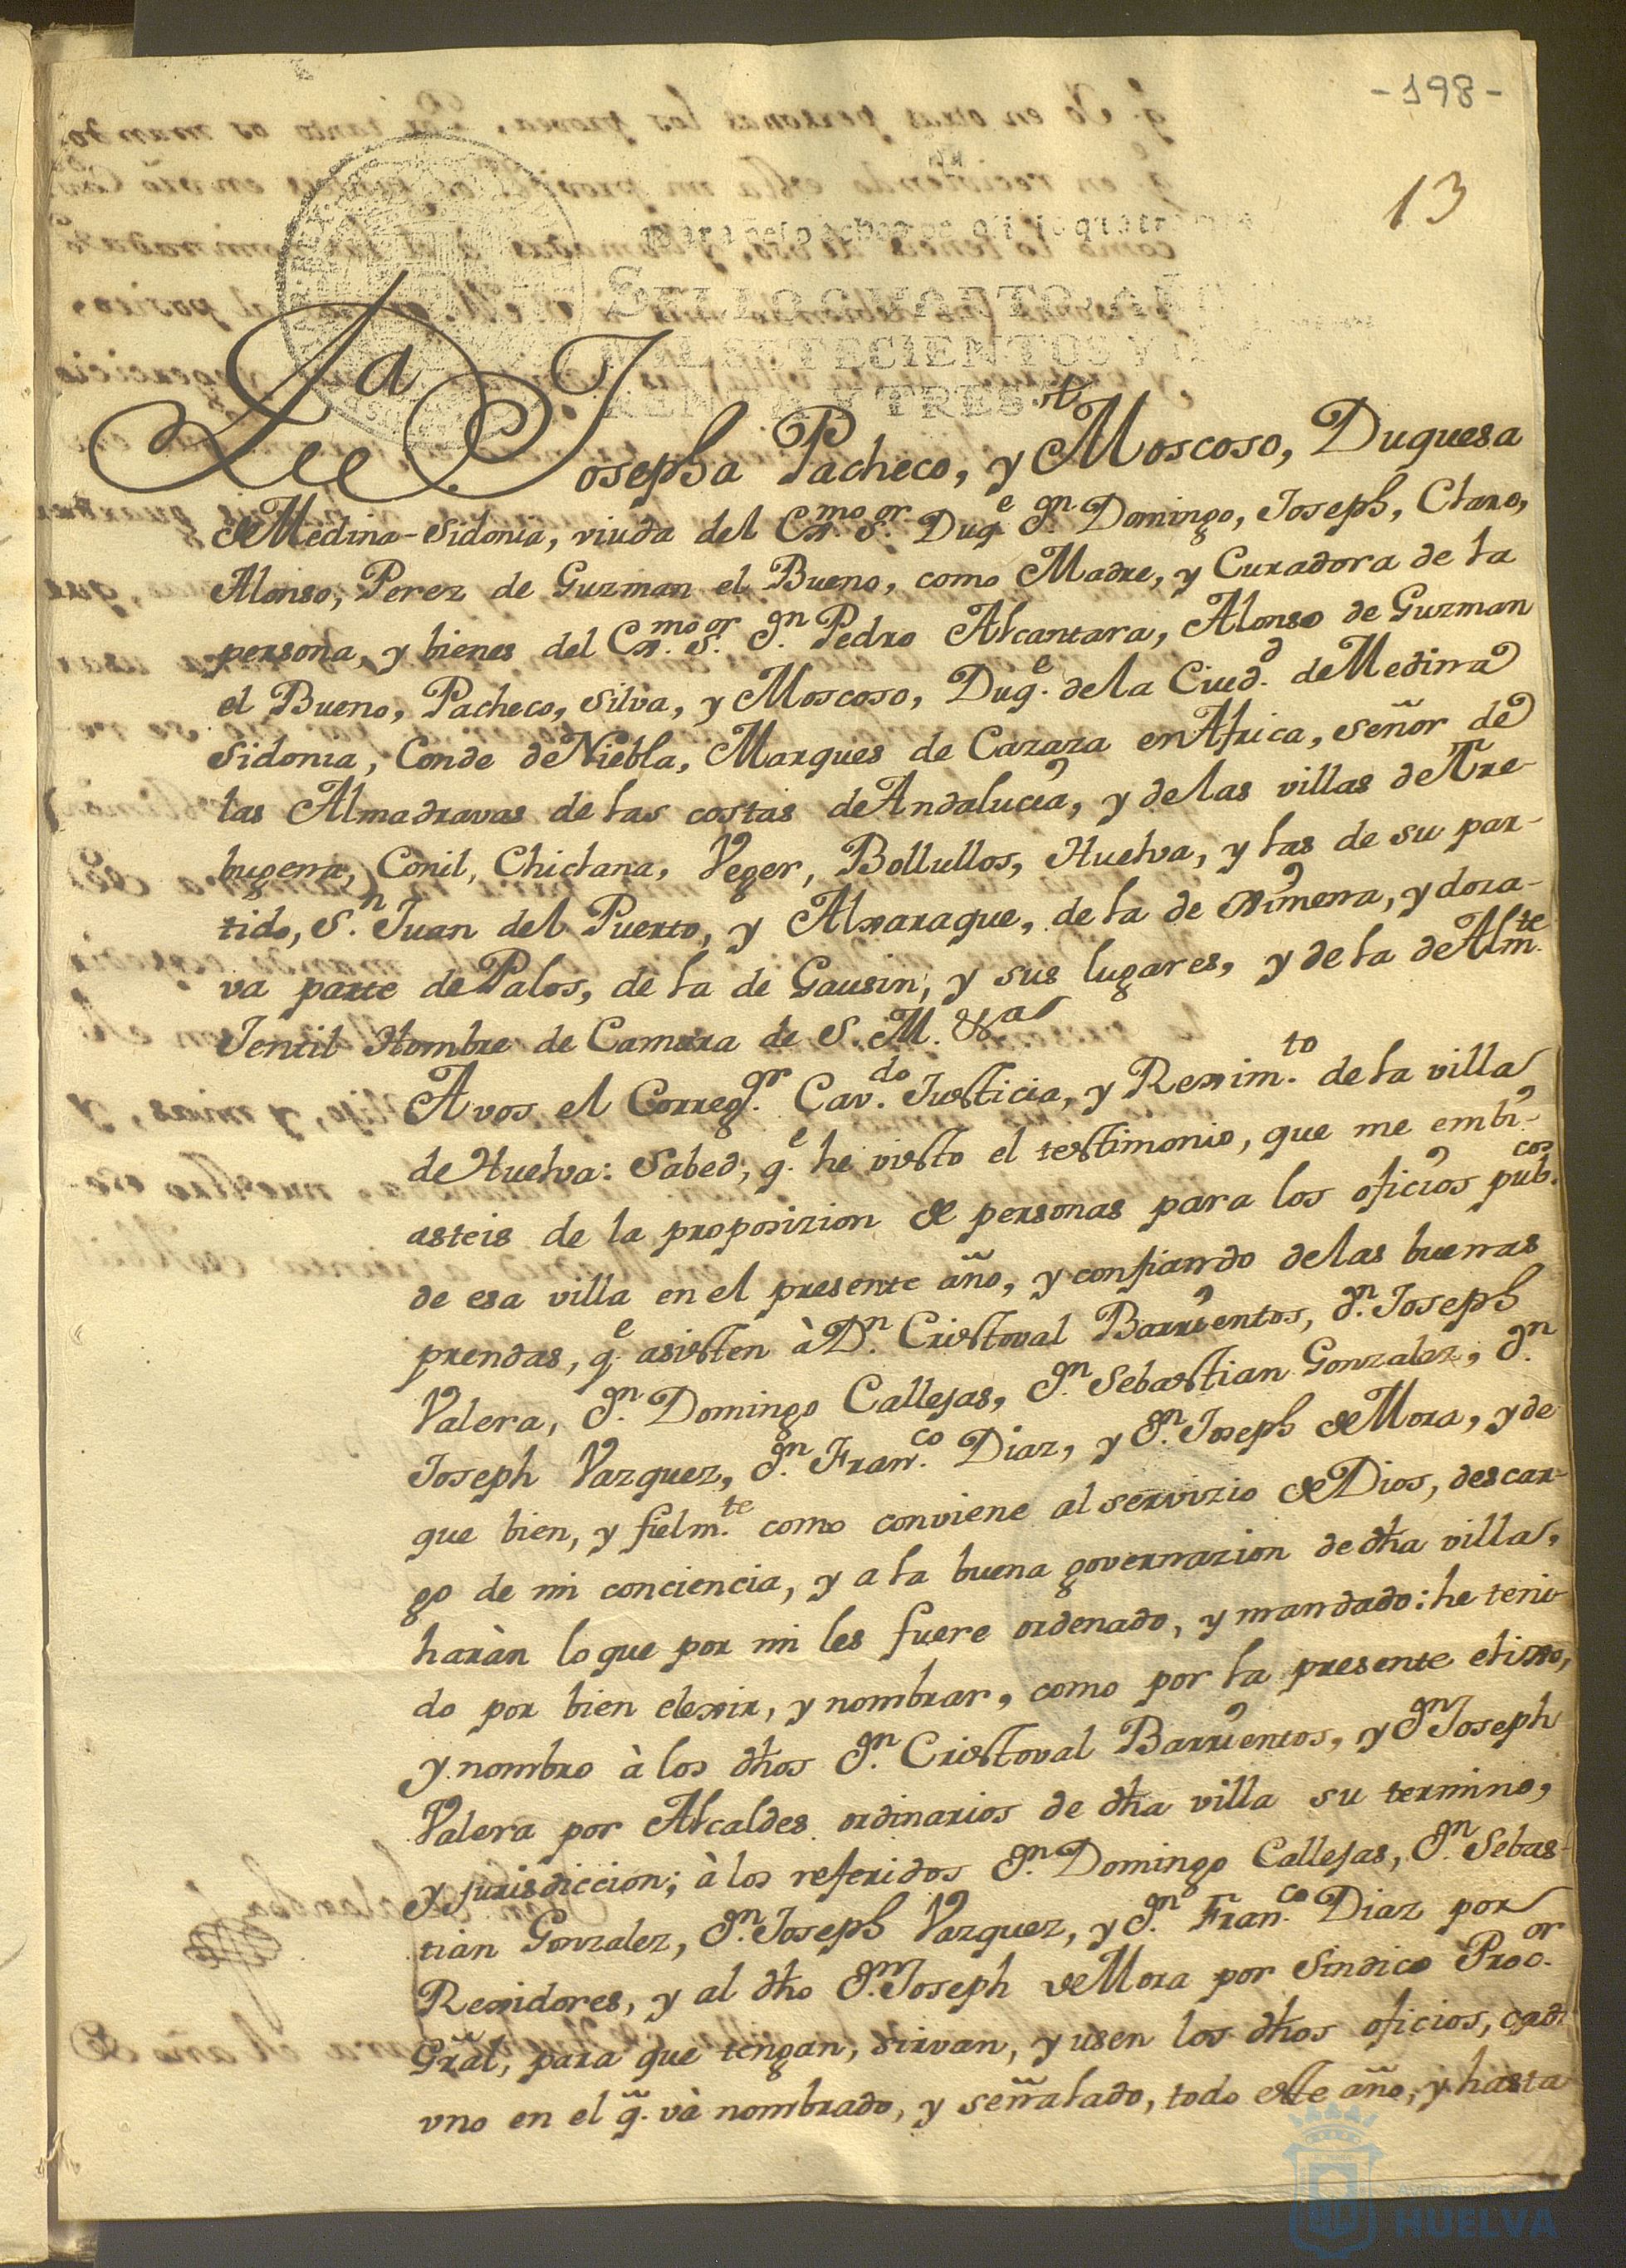 -198-
13
SELLO QUARTO, AÑO
MIL SETECIENTOS Y
RENTA Y TRES.
D.ª Josepha Pacheco, y Moscoso, Duquesa
de Medina-Sidonia, viuda del Ex.mo S.or Duq.e D.n Domingo, Joseph, Claro,
Alonso, Perez de Guzman el Bueno, como Madre, y Curadora de la
persona, y bienes del Ex.mo S.or D.n Pedro Alcantara, Alonso de Guzman
el Bueno, Pacheco, Silva, y Moscoso, Duq.e de la Ciud.d de Medina
Sidonia, Conde de Niebla, Marques de Cazaza en Africa, señor de
las Almadravas de las costas de Andalucia, y de las villas de Tre-
bugena, Conil, Chiclana, Veger, Bollullos, Huelva, y las de su par-
tido, S.n Juan del Puerto, y Alxaraque, de la de Ximena, y doza-
va parte de Palos, de la de Gausin, y sus lugares, y de la de Alm.te
Jentil Hombre de Camara de S. M. &.a
A vos el Correg.or Cav.do Justicia, y Reximi.to de la villa
de Huelva: Sabed, q.e he visto el testimonio, que me embi-
asteis de la proposizion de personas para los oficios pub.cos
de esa villa en el presente año, y confiando de las buenas
prendas, q.e asisten à D.n Cristoval Barrientos, d.n Joseph
Valera, d.n Domingo Callejas, d.n Sebastian Gonzalez, d.n
Joseph Vazquez, d.n Fran.co Diaz, y d.n Joseph de Mora, y de
que bien, y fielm.te como conviene al servizio de Dios, descar-
go de mi conciencia, y a la buena governazion de dha villa,
haràn lo que por mi les fuere ordenado, y mandado: he teni-
do por bien elexir, y nombrar, como por la presente elixo,
y nombro à los dhos d.n Cristoval Barrientos, y d.n Joseph
Valera por Alcaldes ordinarios de dha villa su termino,
y jurisdiccion; à los referidos d.n Domingo Callejas, d.n Sebas-
tian Gonzalez, d.n Joseph Vazquez, y d.n Fran.co Diaz por
Rexidores, y al dho d.n Joseph de Mora por Sindico Proc.or
Gral, para que tengan, sirvan, y usen los dhos oficios, cad.
vno en el q. và nombrado, y señalado, todo este año, y hasta
HUELVA